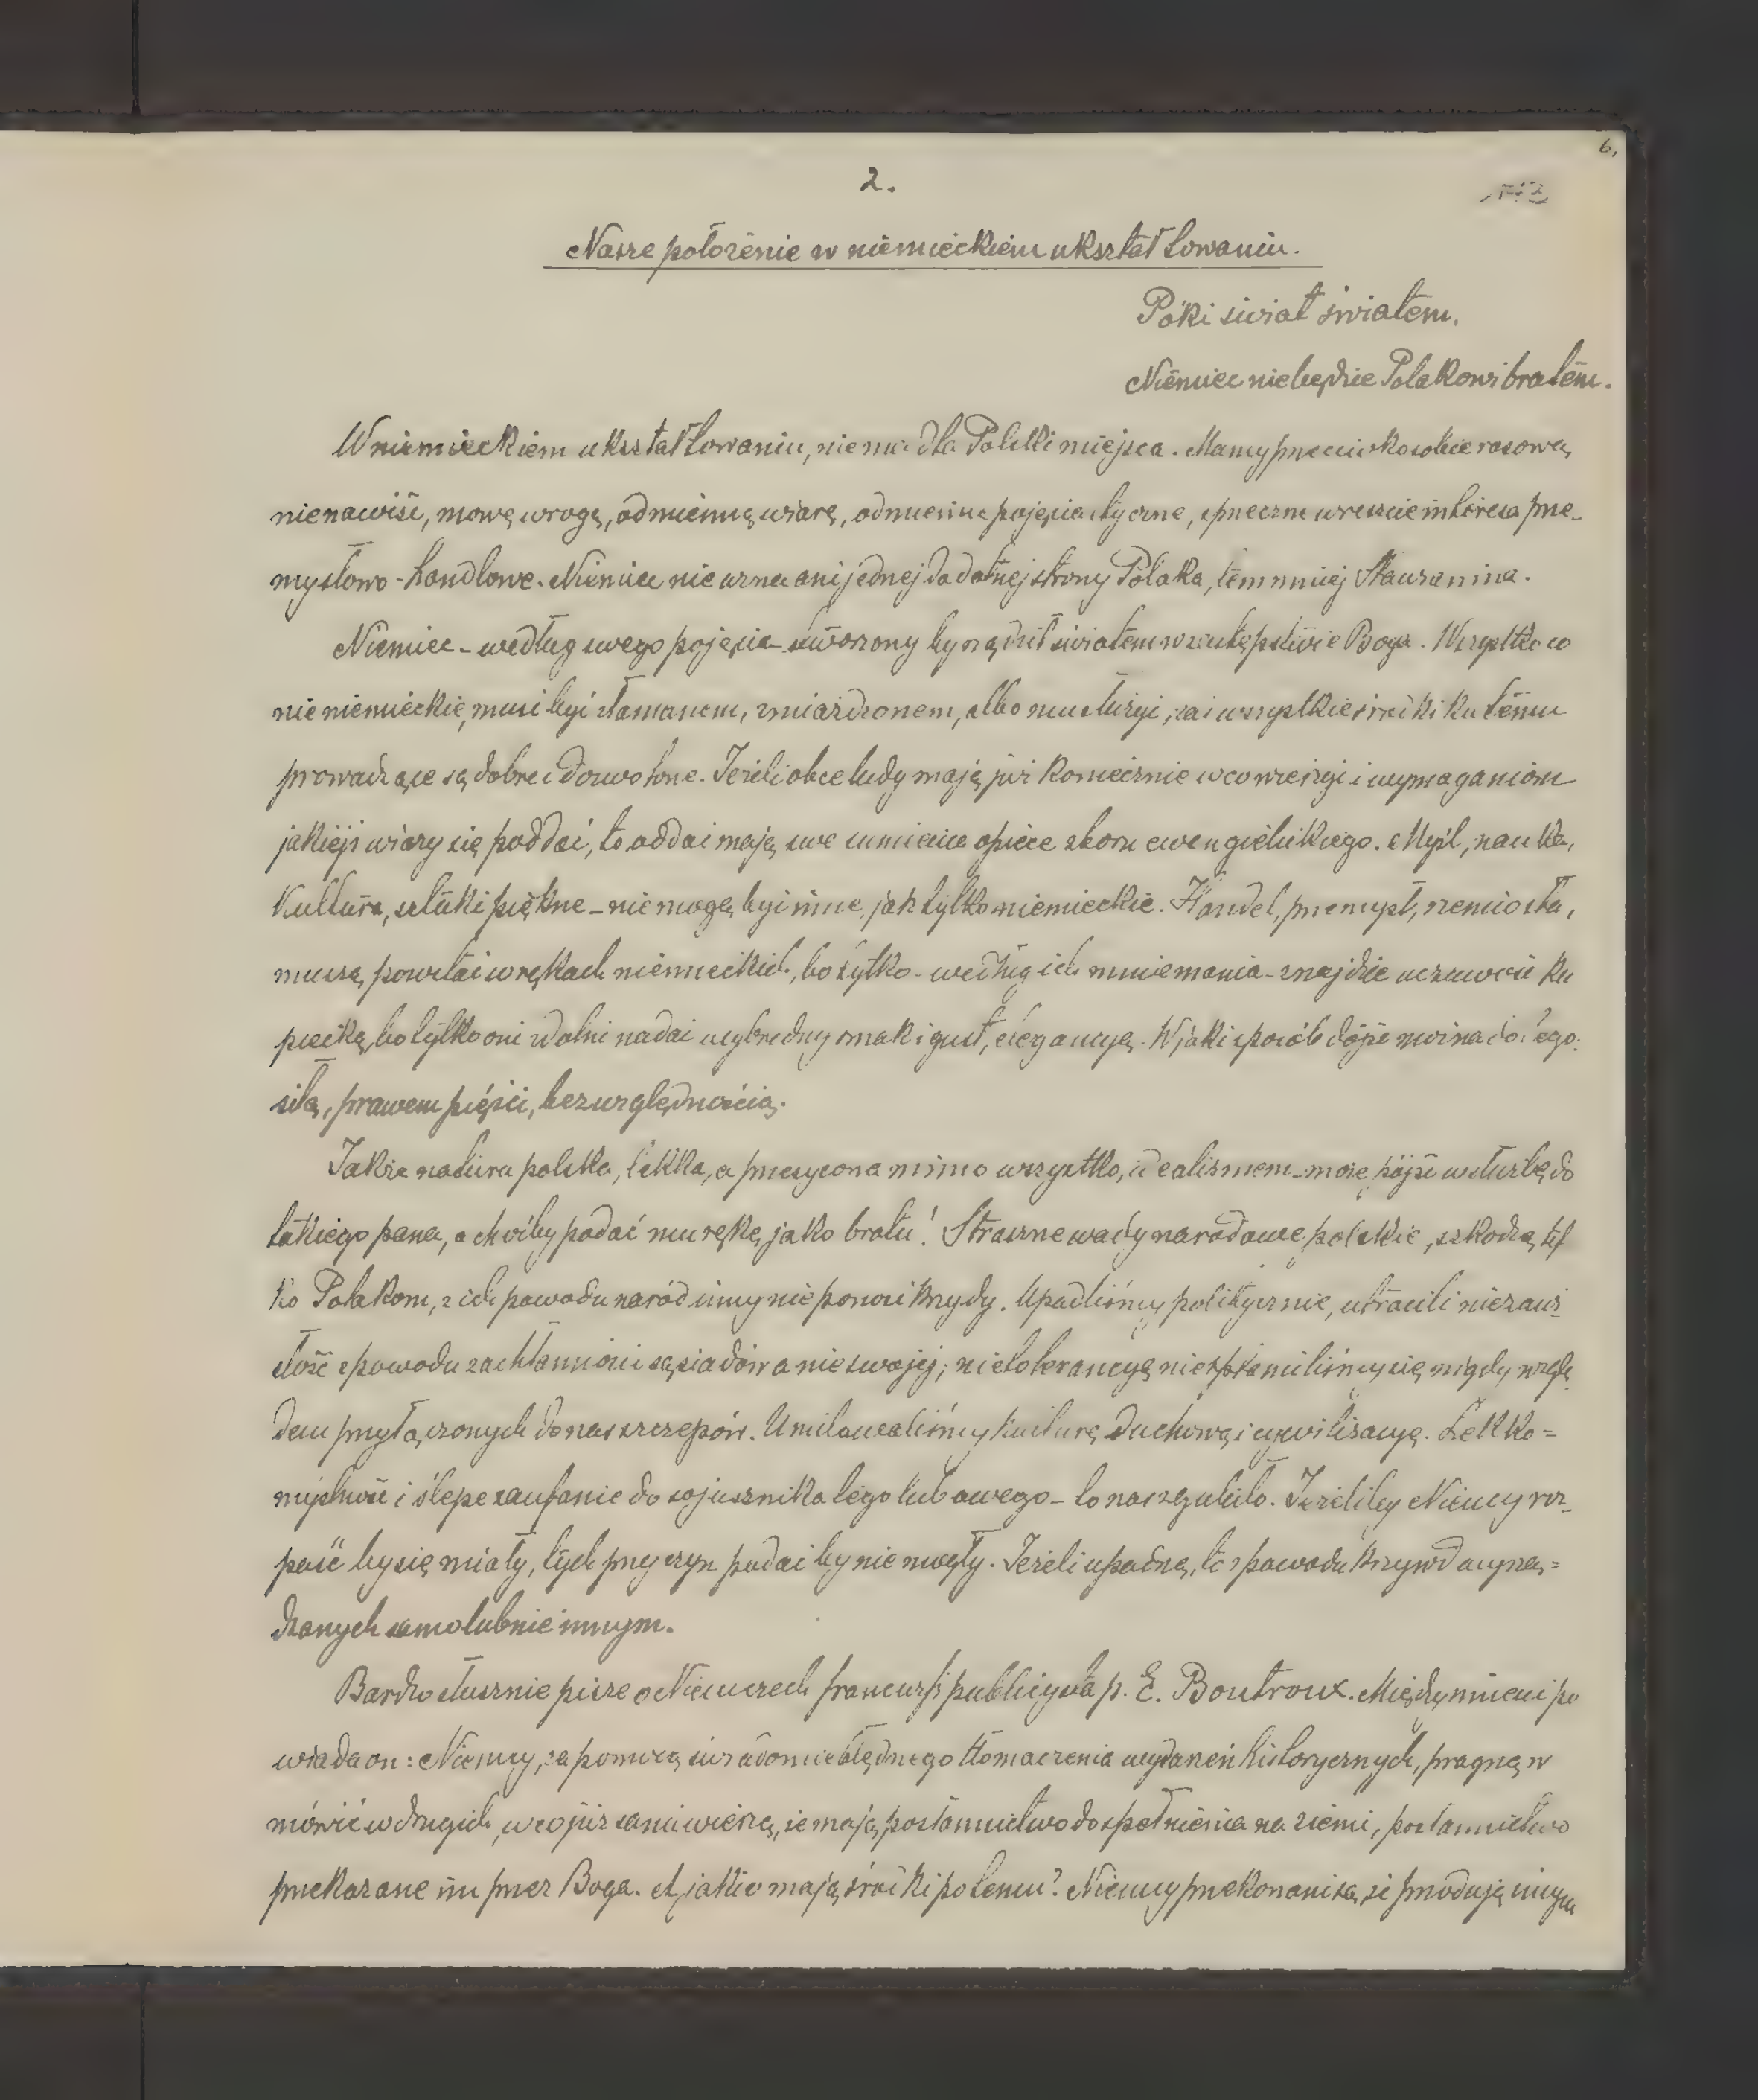 6,
2.
Nasze położenie w niemieckiem ukształtowaniu.
Póki świat światem,
Niemiec nie będzie Polakowi bratem.
W niemieckiem ukształtowaniu, niema dla Polski miejsca. Mamy przeciwko sobie rasową
nienawiść, mowę wrogą, odmienną wiarę, odmienne pojęcia etyczne, sprzeczne wreszcie interesa prze-
mysłowo-handlowe. Niemiec nie uzna ani jednej dodatniej strony Polaka, tem mniej Mazurzanina.
Niemiec - według swego pojęcia - stworzony by rządził światem w zastępstwie Boga. Wszystko co
nie niemieckie, musi być złamanem, zmiażdżonem, albo mu służyć, zaś wszystkie środki ku temu
prowadzące są dobre i dozwolone. Jeżeli obce ludy mają już koniecznie w co wierzyć i wymaganiom
jakiejś wiary się poddać, to oddać mają swe sumienie opiece zboru ewangielickiego. Myśl, nauka,
kultura, sztuki piękne - nie mogą być inne, jak tylko niemieckie. Handel, przemysł, rzemiosła,
muszą powstać w rękach niemieckich, bo tylko - według ich mniemania - znajdzie uczciwość ku
piecką, bo tylko oni zdolni nadać wybredny smak i gust, elegancyę. W jaki sposób dojść można do tego:
siłą, prawem pięści, bezwzględnością.
Jakże natura polska, lekka, a przesycona mimo wszystko, idealizmem - może pójść w służbę do
takiego pana, a choćby podać mu rękę, jako bratu! Straszne wady narodowe polskie, szkodzą tyl
ko Polakom, z ich powodu naród inny nie ponosi krzywdy. Upadliśmy politycznie, utracili niezawi-
słość z powodu zachłanności sąsiadów a nie swojej; nietolerancyą nie splamiliśmy się nigdy wzglę
dem przyłączonych do nas szczepów. Umiłowaliśmy kulturę duchową i cywilizacyę. Lekko=
myślność i ślepe zaufanie do sojusznika tego lub owego - to nas zgubiło. Jeżeliby Niemcy roz-
paść by się miały, tych przyczyn podać by nie mogły. Jeżeli upadną, to z powodu krzywd wyrzą=
dzanych samolubnie innym.
Bardzo słusznie pisze o Niemczech francuski publicysta p. E. Boutroux. Między innemi po
wiada on: Niemcy, za pomocą świadomie błędnego tłomaczenia wydarzeń historycznych, pragną w
mówić w drugich, w co już sami wierzą, że mają posłannictwo do spełnienia na ziemi, posłannictwo
przekazane im przez Boga. A jakie mają środki po temu? Niemcy przekonani są, że przodują innym